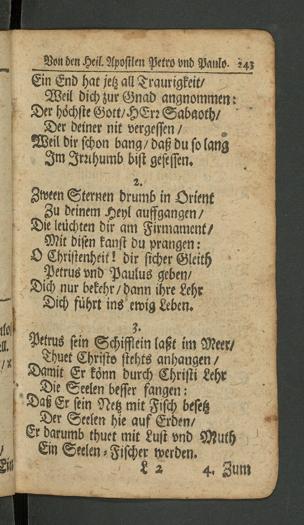 Von den Heil. Apostlen Petro vnd Paulo. 243
Ein End hat jetz all Traurigkeit/
Weil dich zur Gnad angnommen:
Der höchste Gott/ HErr Sabaoth/
Der deiner nit vergessen/
Weil dir schon bang/ daß du so lang
Im Irrthumb bist gesessen.
2.
Zween Sternen drumb in Orient
Zu deinem Heyl auffgangen/
Die leüchten dir am Firmament/
Mit disen kanst du prangen:
O Christenheit! dir sicher Gleith
Petrus vnd Paulus geben/
Dich nur bekehr/ dann ihre Lehr
Dich führt ins ewig Leben.
3.
Petrus sein Schifflein laßt im Meer/
Thuet Christo stehts anhangen/
Damit Er könn durch Christi Lehr
Die Seelen besser fangen:
Daß Er sein Netz mit Fisch besetz
Der Seelen hie auf Erden/
Er darumb thuet mit Lust vnd Muth
Ein Seelen-Fischer werden.
L 2 4. Zum